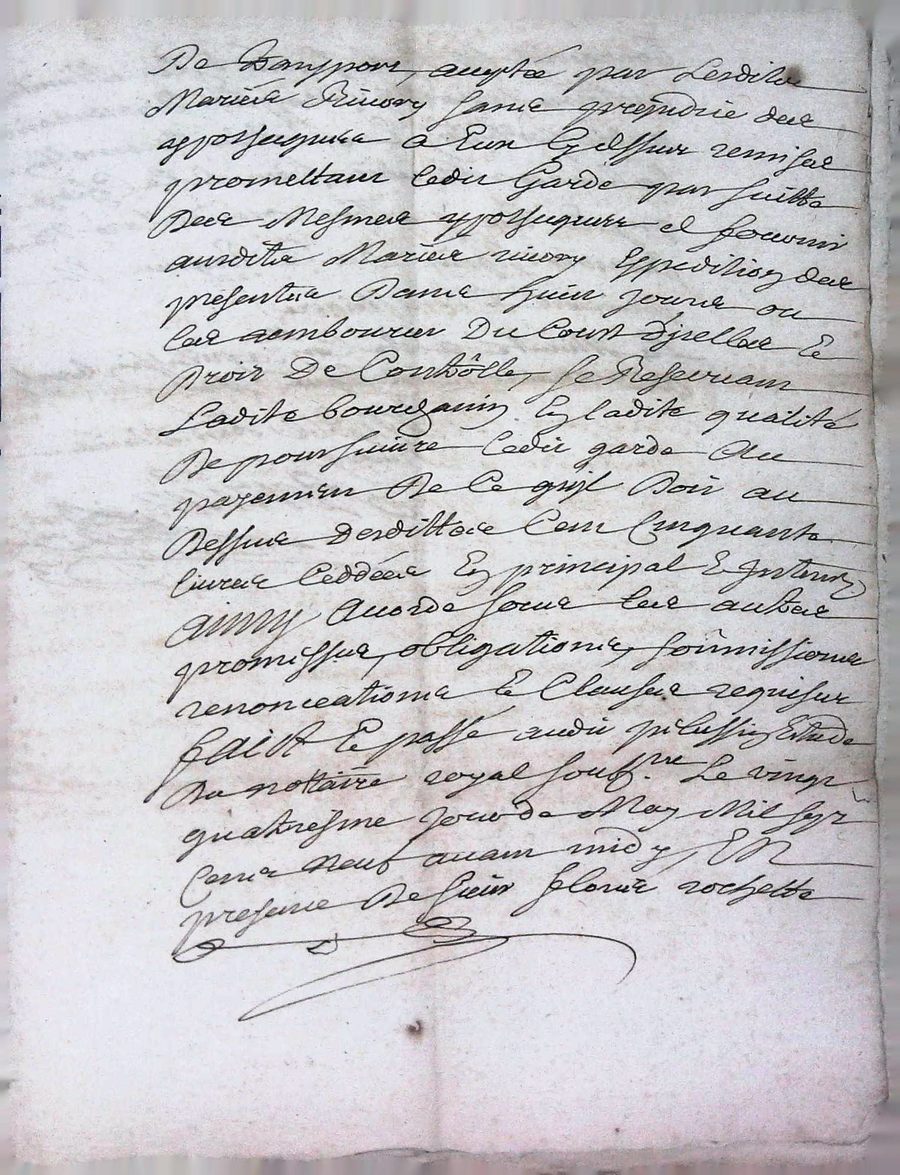 De Transport, aceptée par Lesdits
Mariés Rivory sans prejudice des
ypothecques a Eux Cy dessus remises
promettant Ledit Garde par suitte
Des Mesmes ypothecques et fournir
ausdits Mariés rivory Expedition des
presentes Dans huit jours ou
les rembourser Du Coust d'jcelles Et
Droit De Conthôlle, Se Reservant
Ladite bourgamy En ladite qualité
De poursuivre Ledit garde Au
payement De Ce quil Doit au
Dessus Desdittes Cent Cinquante
livres Ceddées En principal & Jnterest
ainsy Acordé sous les autres
promesses, obligations, soûmissions
renonceations Et Clauses requises
fAict Et passé audit pelussin Estude
Du nottaire royal sousig.re Le vingt
quatriesme Jour de May Mil sept
Cents Neuf avant midy, EN
presence De sieur rochette